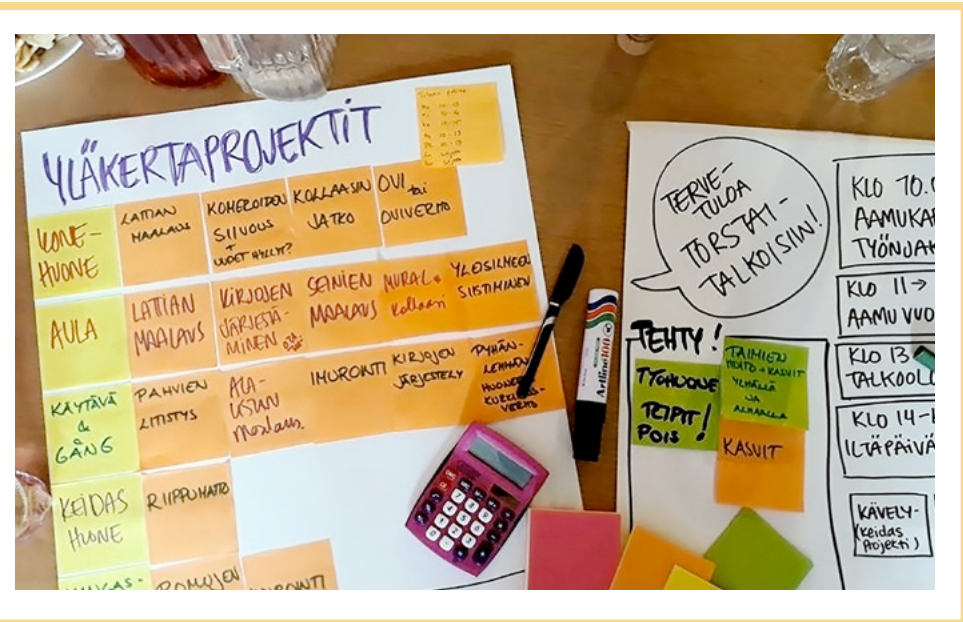 YLÄKERTAPROJEKTIT
KONE-
HUONE
LATTIAN
MAALAUS
KOMEROIDEN
SIIVOUS
+
UUDET HYLLYT?
KOLLAASIN
JATKO
OVI tai
OVIVERHO
AULA
LATTIAN
MAALAUS
KIRJOJEN
JÄRJESTÄ-
MINEN
SEINIEN
MAALAUS
MURAL &
kollaasi
YLEISILMEEN
SIISTIMINEN
KÄYTÄVÄ
&
GÅNG
PAHVIEN
LITISTYS
ALA-
USTAN
Maalaus.
IMUROINTI
KIRJOJEN
JÄRJESTELY
PYHÄN-
LEHMÄN
HUONEEN
VERHO
KEIDAS
HUONE
RIIPPUMATTO
ROMOJEN
TERVE-
TULOA
TORSTAI-
TALKOISIIN!
TEHTY!
TYÖHUONE
TEIPIT!
POIS
TAIMIEN
HOITO + KASVIT
YLHÄÄLLÄ
JA
ALHAALLA
KASVIT
Artline 100
KLO 10.
AAMUKA
TYÖNJAK
KLO 11→
AAMUVUO
KLO 13
TALKOOLO
KLO 14-
ILTAPÄIVÄ
KÄVELY-
(Keidas
Projekti)